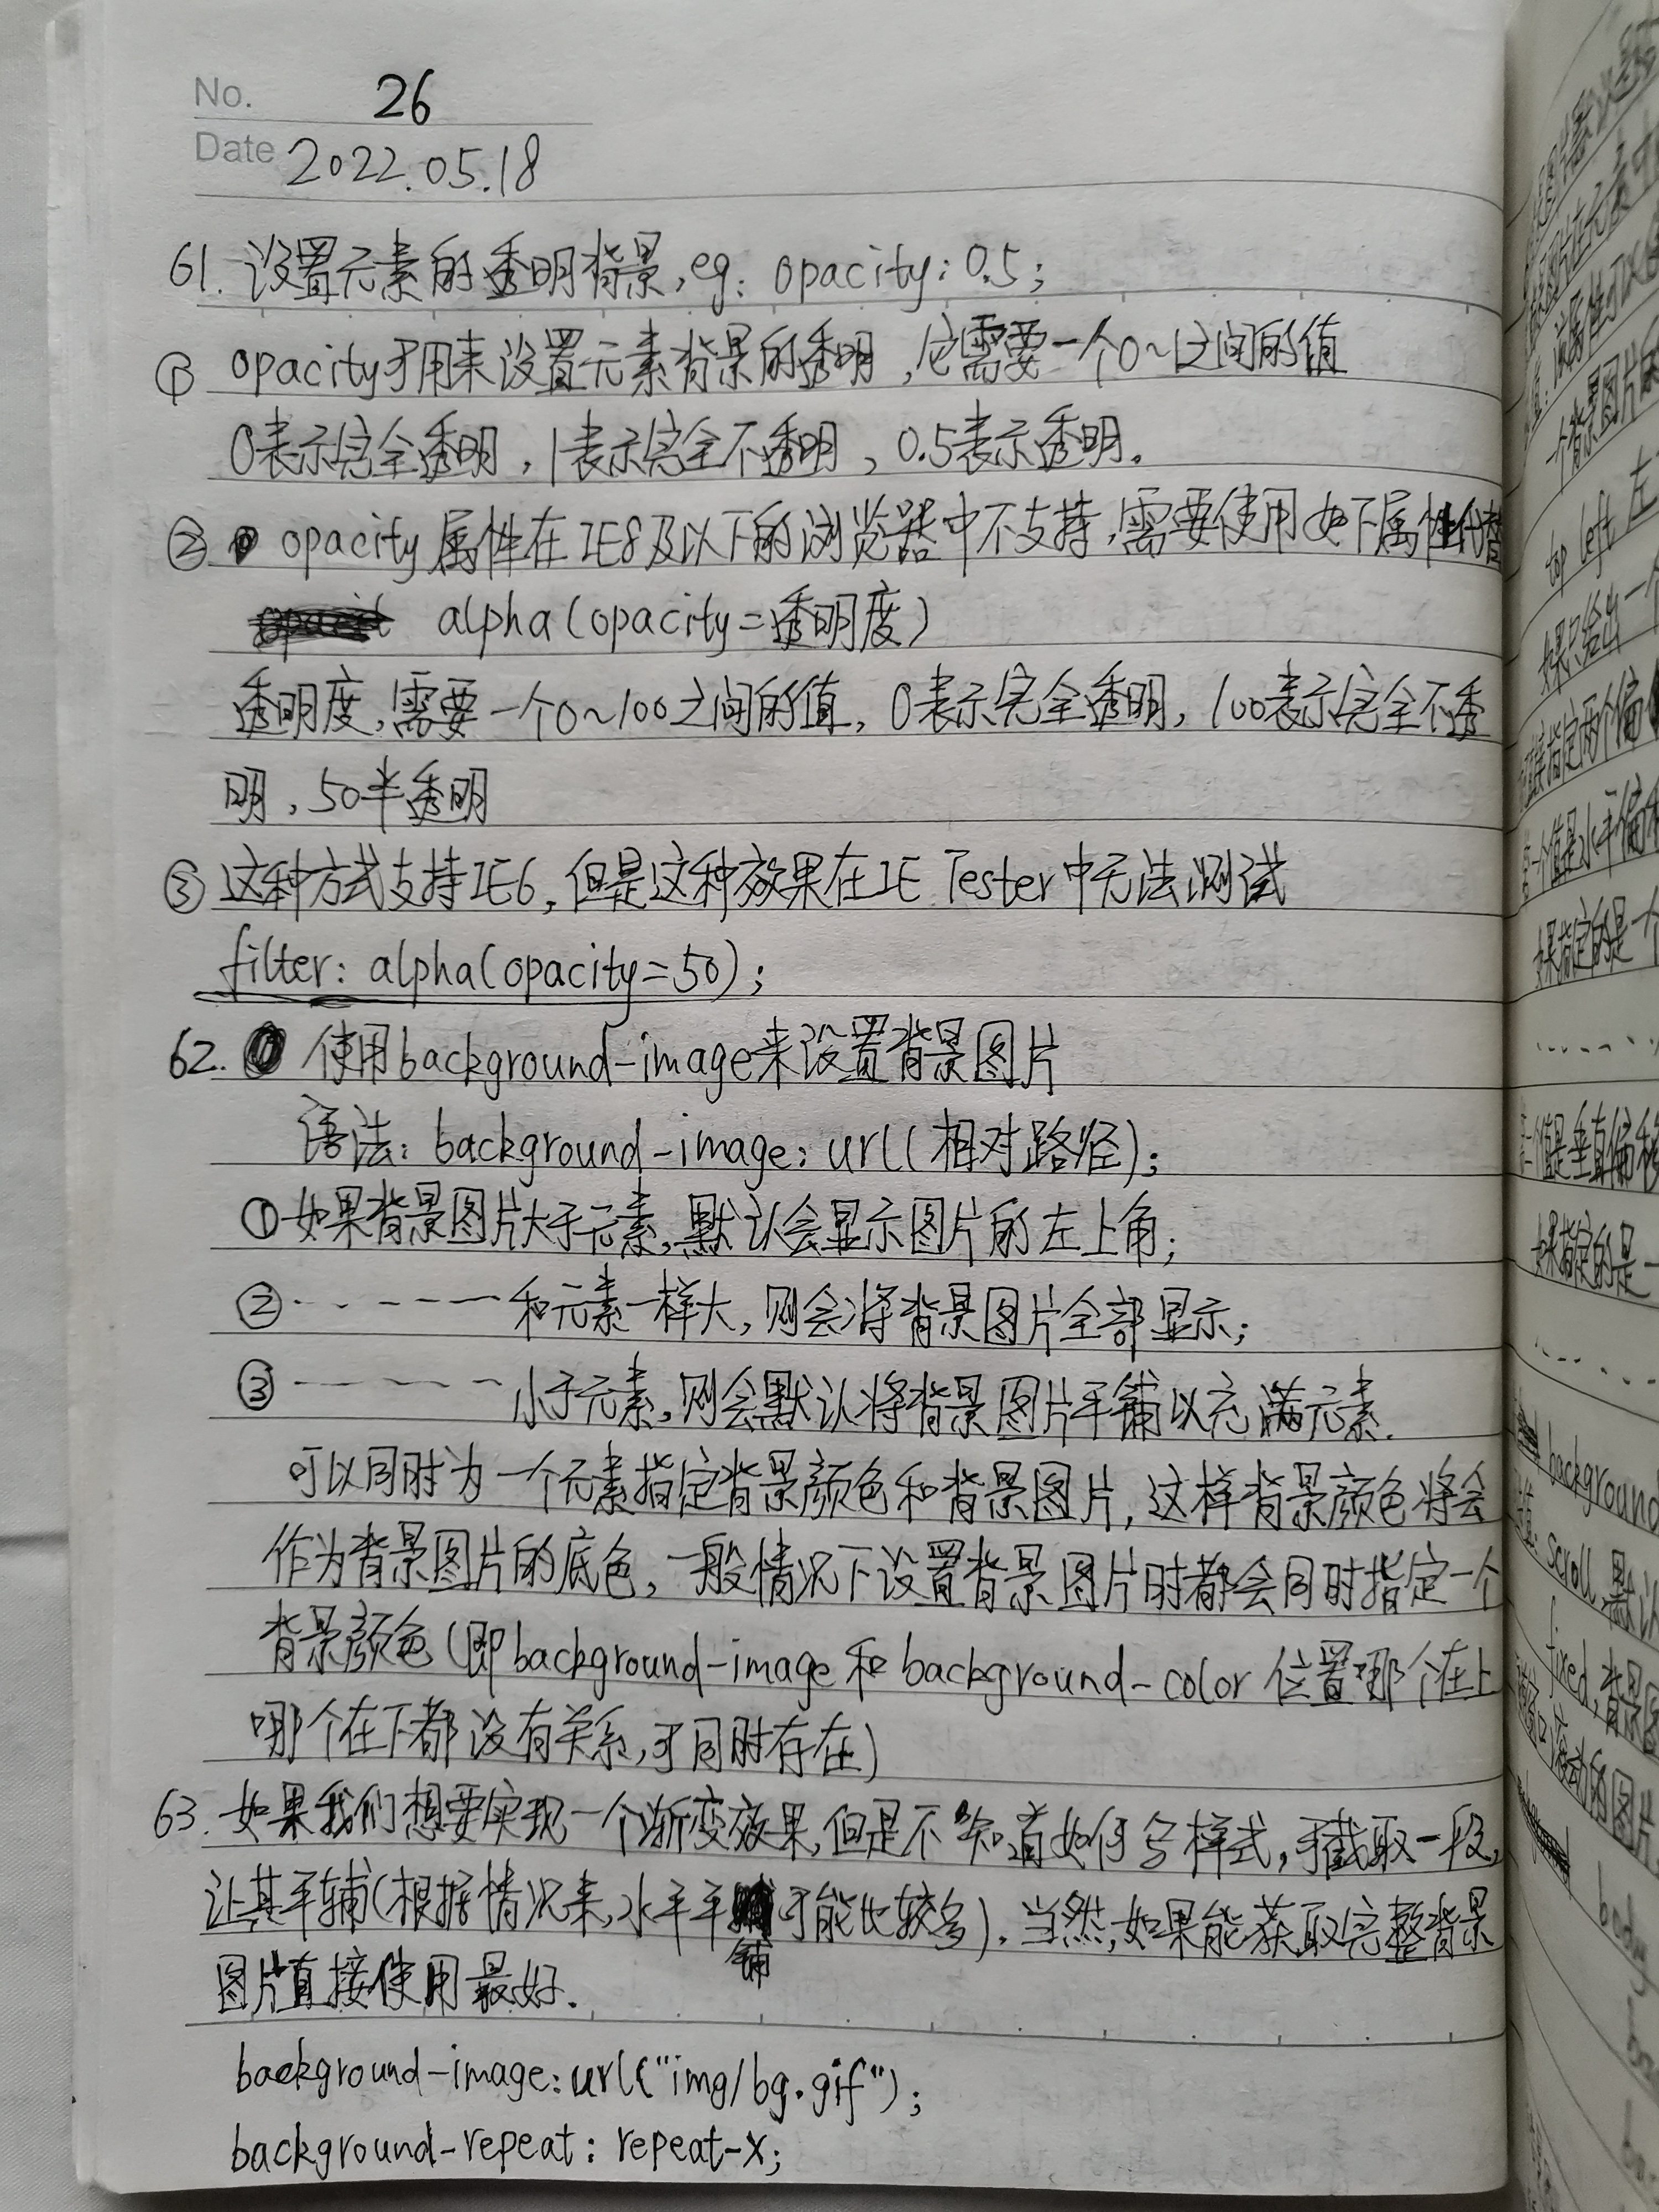 No. 26
Date 2022.05.18
61. 设置元素的透明背景,eg: opacity: 0.5;
① opacity可用来设置元素背景的透明,它需要一个0~1之间的值
0表示完全透明,1表示完全不透明,0.5表示透明。
② opacity属性在IE8及以下的浏览器中不支持,需要使用如下属性代替
alpha(opacity=透明度)
透明度,需要一个0~100之间的值,0表示完全透明,100表示完全不透
明,50半透明
③ 这种方式支持IE6,但是这种效果在IE Tester中无法测试
filter: alpha(opacity=50);
62. 使用background-image来设置背景图片
语法: background-image: url(相对路径);
①如果背景图片大于元素,默认会显示图片的左上角;
②------和元素一样大,则会将背景图片全部显示;
③------小于元素,则会默认将背景图片平铺以充满元素.
可以同时为一个元素指定背景颜色和背景图片,这样背景颜色将会
作为背景图片的底色,一般情况下设置背景图片时都会同时指定一个
背景颜色(即background-image和background-color位置哪个在上
哪个在下都没有关系,可同时存在)
63. 如果我们想要实现一个渐变效果,但是不知道如何写样式,可截取一段,
让其平铺(根据情况来,水平平铺可能比较多).当然,如果能获取完整背景
图片直接使用最好.
background-image: url("img/bg.gif");
background-repeat: repeat-x;
top left 左
如果只给出一个
直接指定两个偏
一个值是水平偏移
如果指定的是一个
值是垂直偏移
如果指定的是一
background
scroll,默认
fixed,背景图